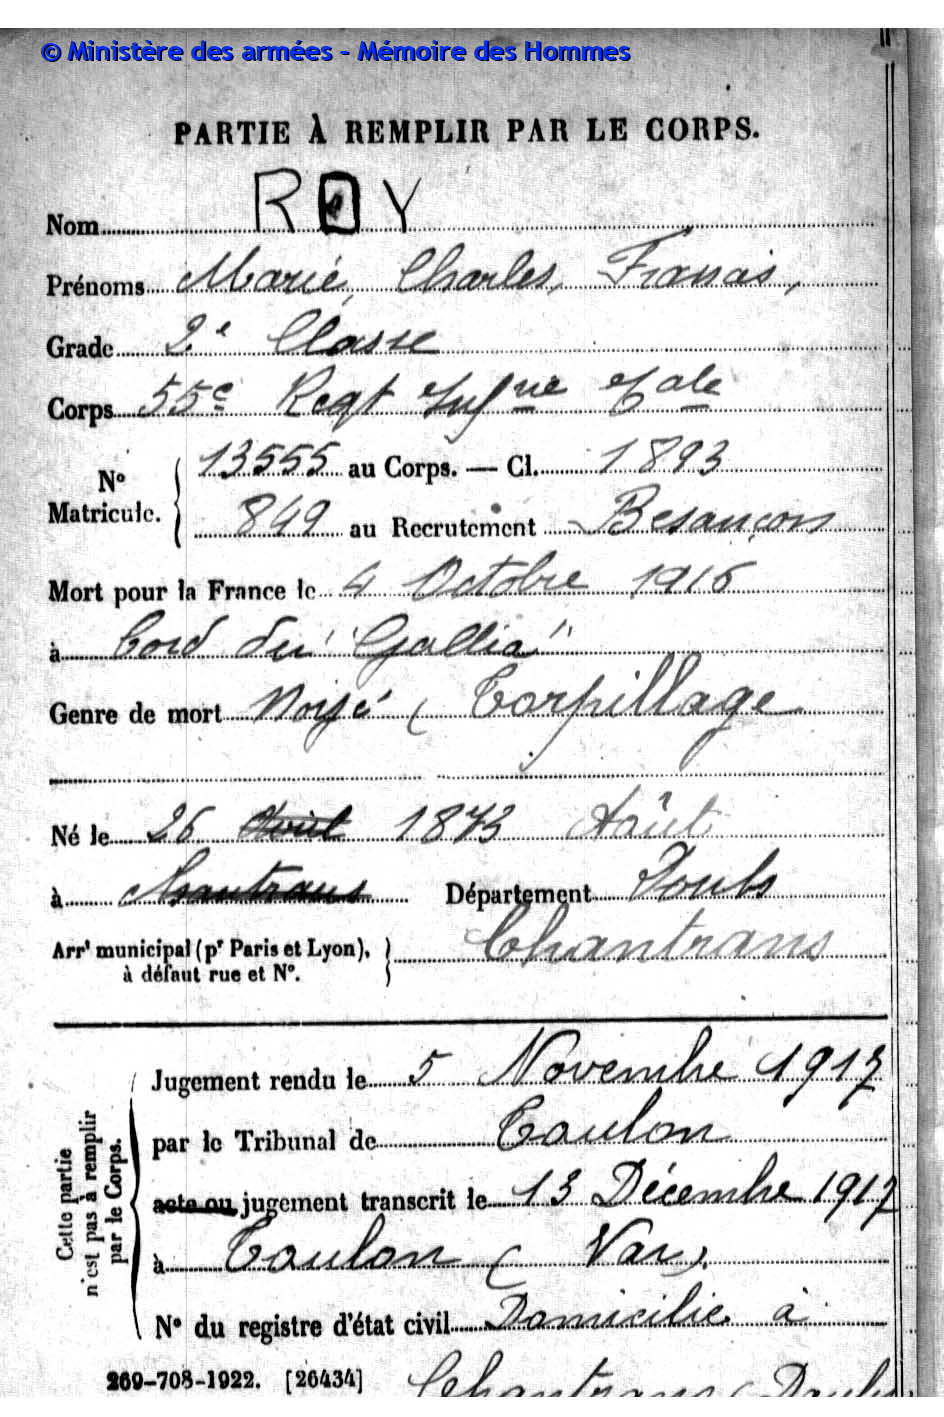 © Ministère des armées - Mémoire des Hommes
PARTIE À REMPLIR PAR LE CORPS.
Nom ROY
Prénoms Marie, Charles, Franais,
Grade 2e Classe
Corps 55e Regt Infrie Cale
No Matricule. 13555 au Corps. — Cl. 1893
849 au Recrutement Besançon
Mort pour la France le 4 Octobre 1916
à bord du "Gallia"
Genre de mort Noyé (Torpillage
Né le 26 Avril 1873 Août
à Chantrans Département Doubs
Arrt municipal (pr Paris et Lyon), à défaut rue et No. Chantrans
Cette partie n'est pas à remplir par le Corps.
Jugement rendu le 5 Novembre 1917
par le Tribunal de Toulon
acte ou jugement transcrit le 13 Décembre 1917
à Toulon (Var).
No du registre d'état civil Domicilié à
269-708-1922. [26434] Chantrans (Doubs